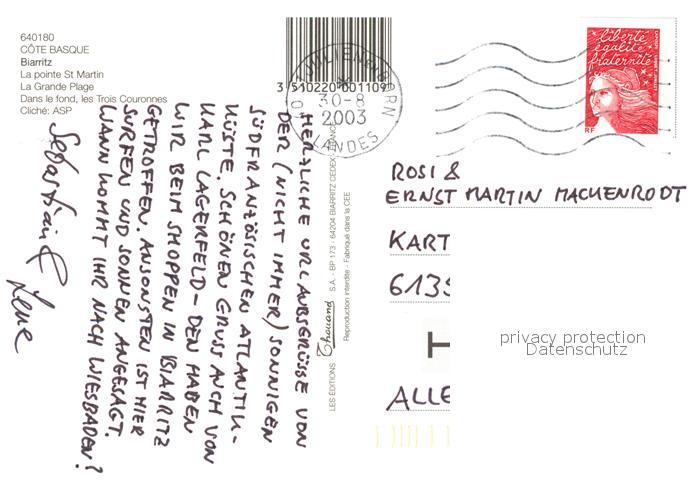 640180
CÔTE BASQUE
Biarritz
La pointe St Martin
La Grande Plage
Dans le fond, les Trois Couronnes
Cliché: ASP
3 510220 001109
30-8
2003
LANDES
liberté
égalité
fraternité
RF
HERZLICHE URLAUBSGRÜSSE VON
DER (NICHT IMMER) SONNIGEN
SÜDFRANZÖSISCHEN ATLANTIK-
KÜSTE. SCHÖNEN GRUSS AUCH VON
KARL LAGERFELD - DEN HABEN
WIR BEIM SHOPPEN IN BIARRITZ
GETROFFEN. ANSONSTEN IST HIER
SURFEN UND SONNEN ANGESAGT.
WANN KOMMT IHR NACH WIESBADEN?
Sebastian & Lene
LES ÉDITIONS Thouand S.A. - BP 173 - 64204 BIARRITZ CEDEX FRANCE
Reproduction interdite - Fabriqué dans la CEE
ROSI &
ERNST MARTIN MACKENRODT
KART
6135
ALLE
privacy protection
Datenschutz